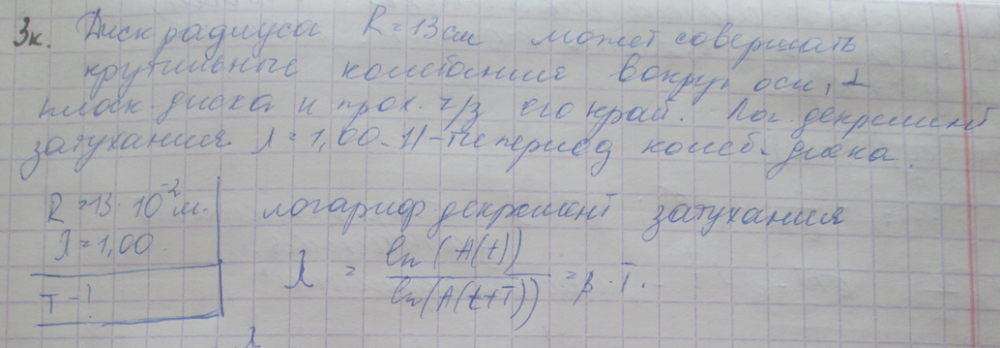 3к. Диск радиуса R = 13 см может совершать
крутильные колебания вокруг оси, ⊥
плоск. диска и прох. ч/з его край. Лог. декремент
затухания λ = 1,00. Н-ти период колеб. диска.
R = 13 · 10⁻² м.
λ = 1,00
T - ?
логариф декремент затухания
λ = ln(A(t)) / ln(A(t+T)) = β · T.
λ